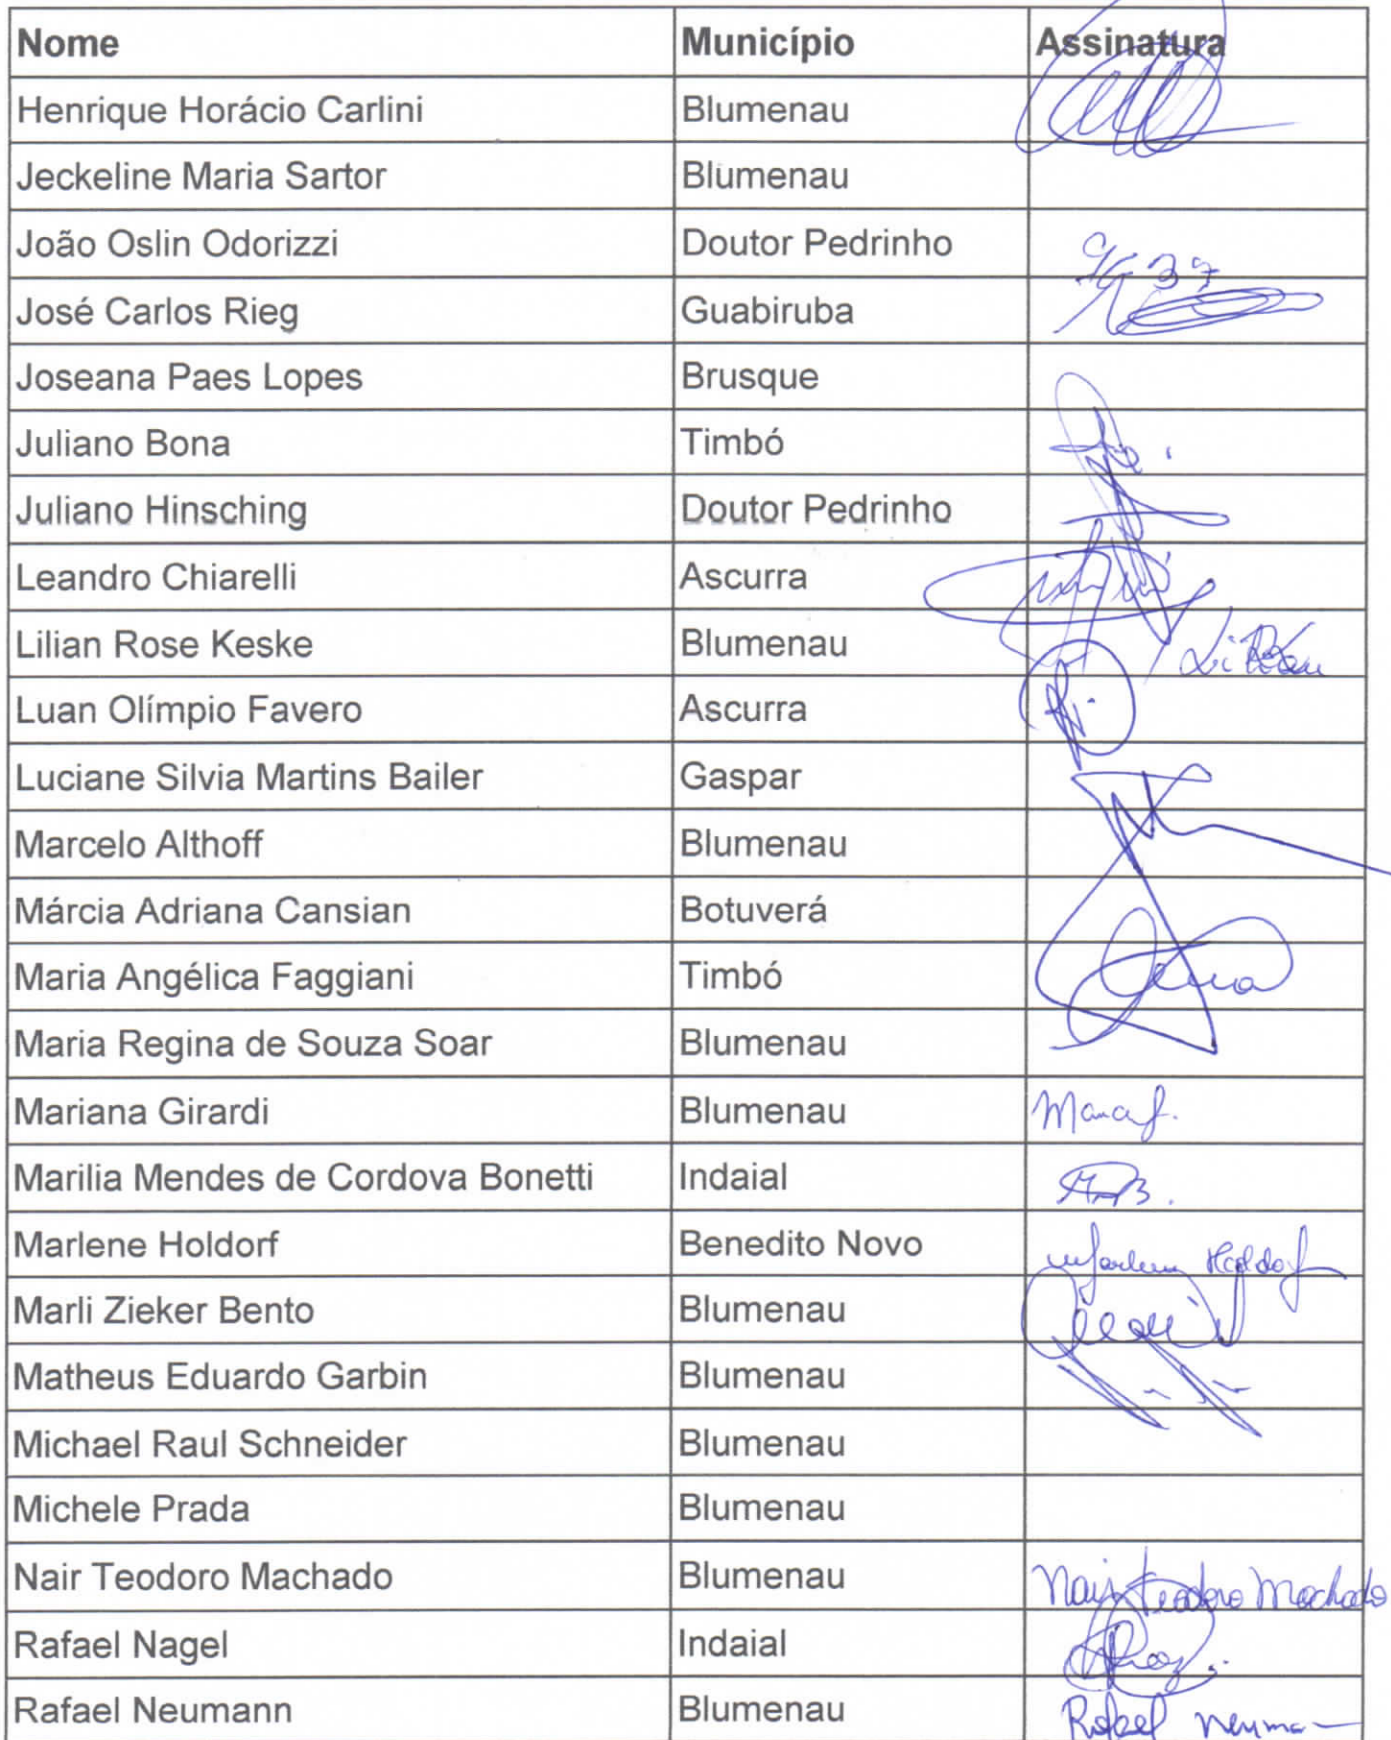 Nome Município Assinatura
Henrique Horácio Carlini Blumenau
Jeckeline Maria Sartor Blumenau
João Oslin Odorizzi Doutor Pedrinho
José Carlos Rieg Guabiruba
Joseana Paes Lopes Brusque
Juliano Bona Timbó
Juliano Hinsching Doutor Pedrinho
Leandro Chiarelli Ascurra
Lilian Rose Keske Blumenau
Luan Olímpio Favero Ascurra
Luciane Silvia Martins Bailer Gaspar
Marcelo Althoff Blumenau
Márcia Adriana Cansian Botuverá
Maria Angélica Faggiani Timbó
Maria Regina de Souza Soar Blumenau
Mariana Girardi Blumenau
Marilia Mendes de Cordova Bonetti Indaial
Marlene Holdorf Benedito Novo Holdorf
Marli Zieker Bento Blumenau
Matheus Eduardo Garbin Blumenau
Michael Raul Schneider Blumenau
Michele Prada Blumenau
Nair Teodoro Machado Blumenau Nair Teodoro Machado
Rafael Nagel Indaial
Rafael Neumann Blumenau Rafael